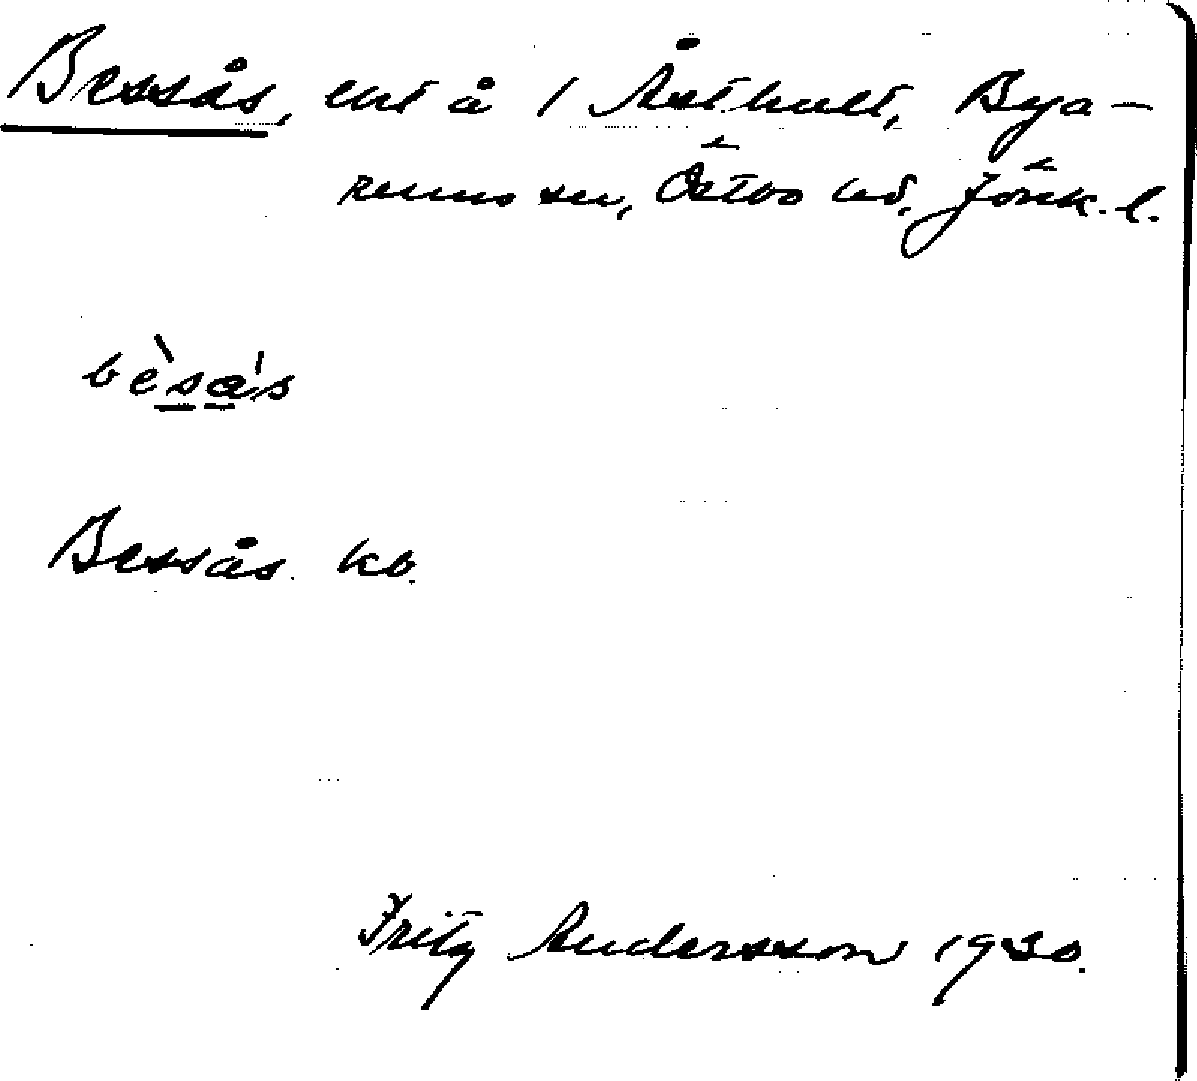 Bessås, ent å 1 Åsthult, Bya-
rums sn, Östbo hd, Jönk. l.
bèsás
Bessås kb.
Fritz Andersson 1930.